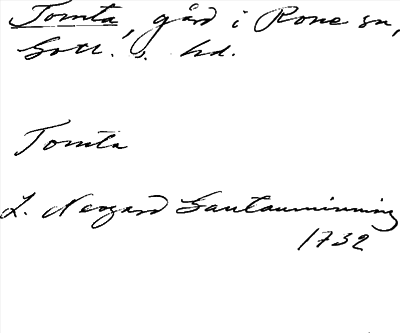 Tomta, gård i Rone sn,
Gotl. s. hd.
Tomta
L. Nergard Gautauminning
1732